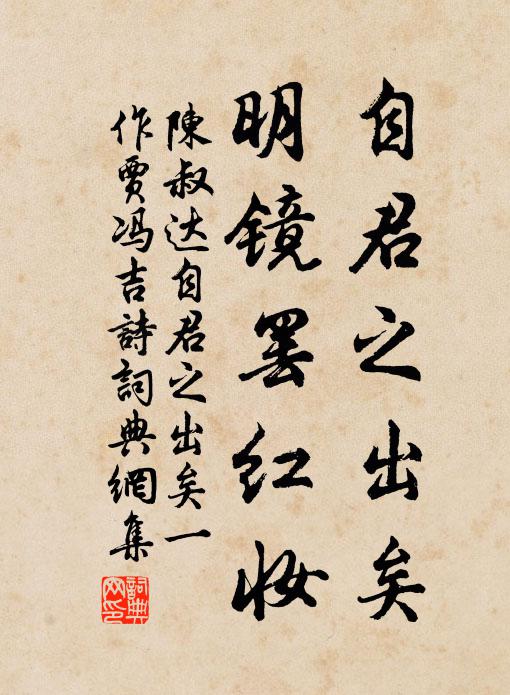 自君之出矣
明镜罢红妆
陳叔达自君之出矣一
作賈冯吉詩詞典網集
詞典
网印